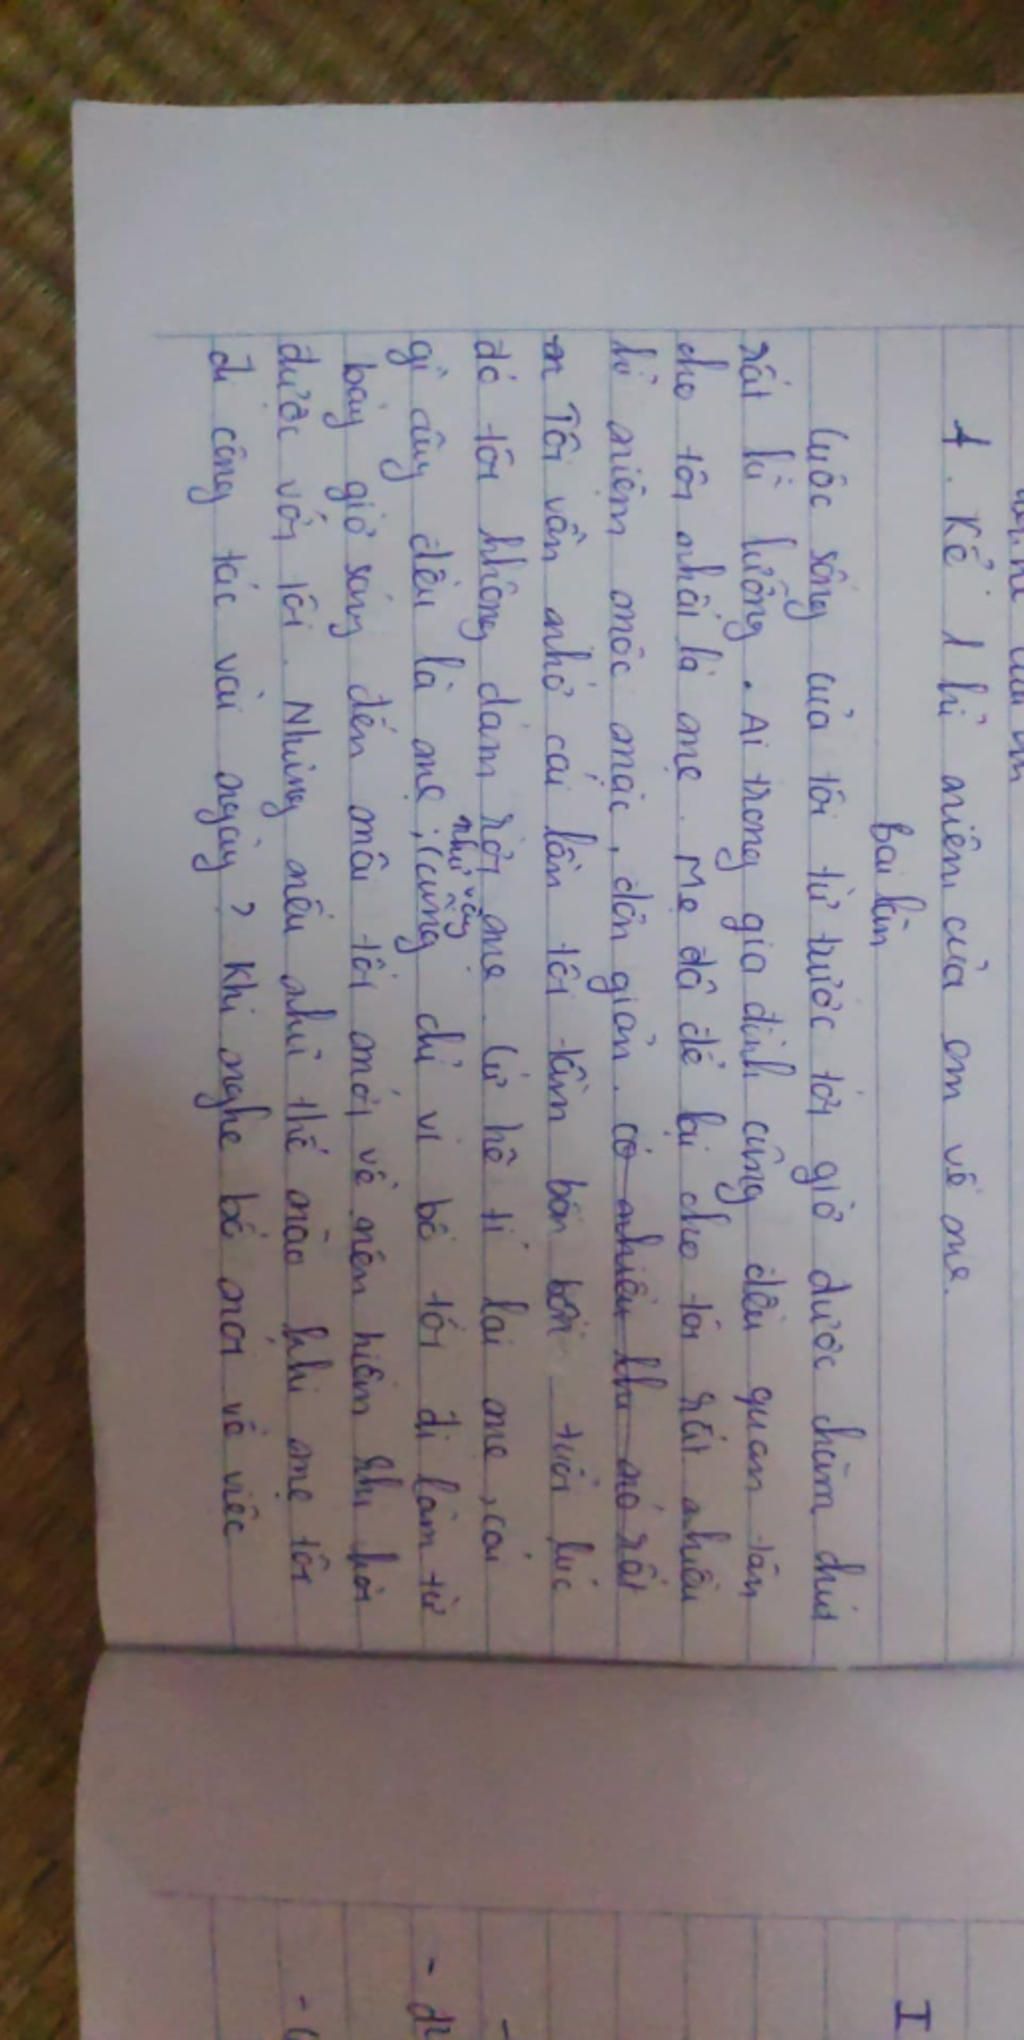 1. Kể 1 kỉ niệm của em về mẹ.
Bài làm
Cuộc sống của tôi từ trước tới giờ được chăm chút
rất kĩ lưỡng. Ai trong gia đình cũng đều quan tâm
cho tôi nhất là mẹ. Mẹ đã để lại cho tôi rất nhiều
kỉ niệm mộc mạc, đơn giản. có nhiều khi nó rất
Tôi vẫn nhớ cái lần tôi tầm bốn bốn tuổi lúc
đó tôi không dám rời mẹ. Cứ hở tí lại mẹ, cái
gì cũng đều là mẹ; (cũng như vậy chỉ vì bố tôi đi làm từ
bảy giờ sáng đến mãi tối mới về nên hiếm khi
được với tôi. Nhưng nếu như thế nào khi mẹ tôi
đi công tác vài ngày? Khi nghe bố nói về việc
I